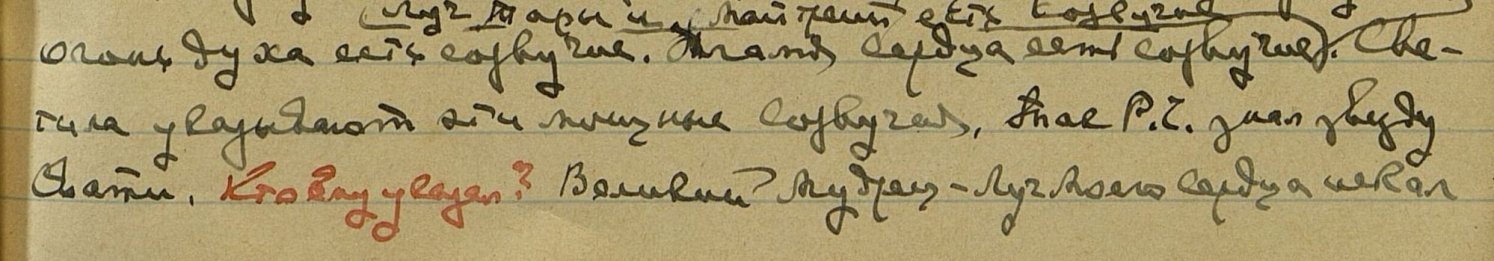 (Луч Тары и Майтрейи есть созвучие
огонь духа есть созвучие. Пламя сердца есть созвучие). Све-
тила указывают эти мощные созвучия, Так Р.С. знал звезду
Свати. Кто Ему указал? Великий Мудрец - Луч Моего сердца искал